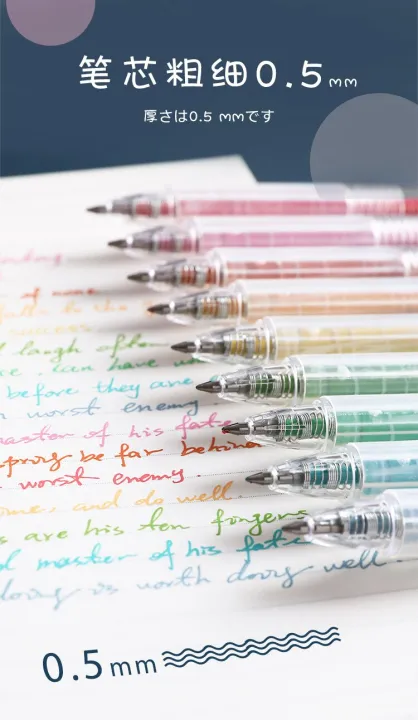 笔芯粗细0.5mm
厚さは0.5 mmです
of none
success.
laugh often
can have
before they are
worst enemy
master of his fate
spring be far behind
worst enemy.
and do well.
are his ten fingers
master of his fate
doing is worth doing well.
0.5mm